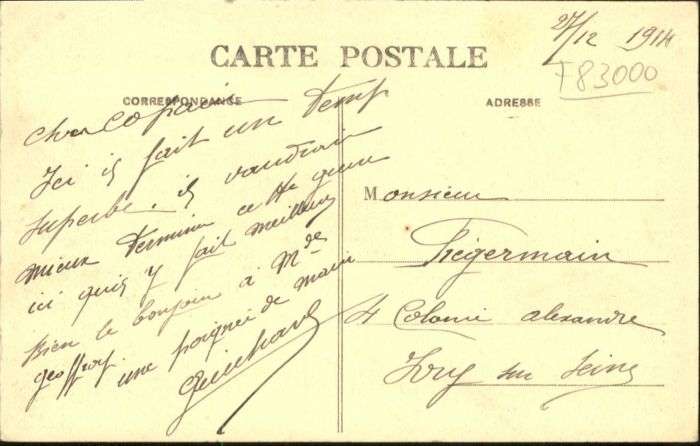 27/12 1914
F83000
CARTE POSTALE
CORRESPONDANCE
ADRESSE
cher copain
Ici il fait un temp
superbe. il vaudrai
mieux termine ce
ici quis y fait meilleur
Bien le bonjour à Mde
geoffroy
une poignée de main
Guichard
Monsieur
Prégermain
4 Colonie alexandre
Ivry sur Seine